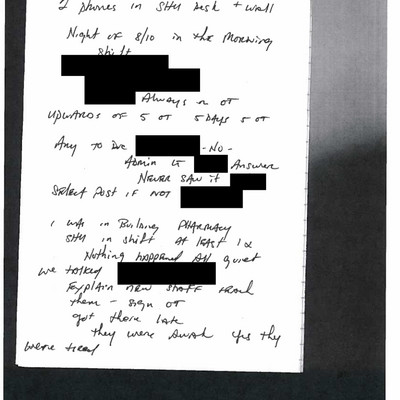 2 phones in SHU Desk + wall
Night of 8/10 in the Morning
shift
Always on OT
upwards of 5 OT 5 days 5 OT
Any to Doc -No-
Admin LT Answer
Never saw it
Select Post if not
I was in Building Pharmacy
SHU in shift at least 1x
Nothing happened All quiet
we talked
Explain new staff
them - sign OT
got there late
they were awake yes they
were tired